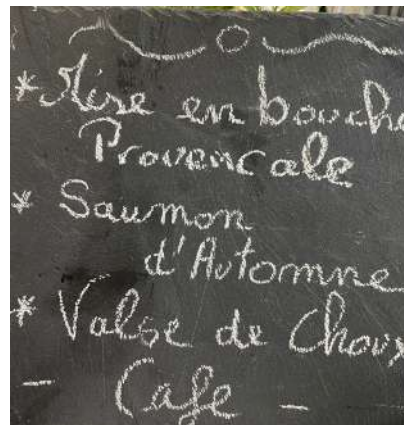 * Mise en bouche
Provencale
* Saumon
d'Automne
* Valse de Choux
- Cafe -